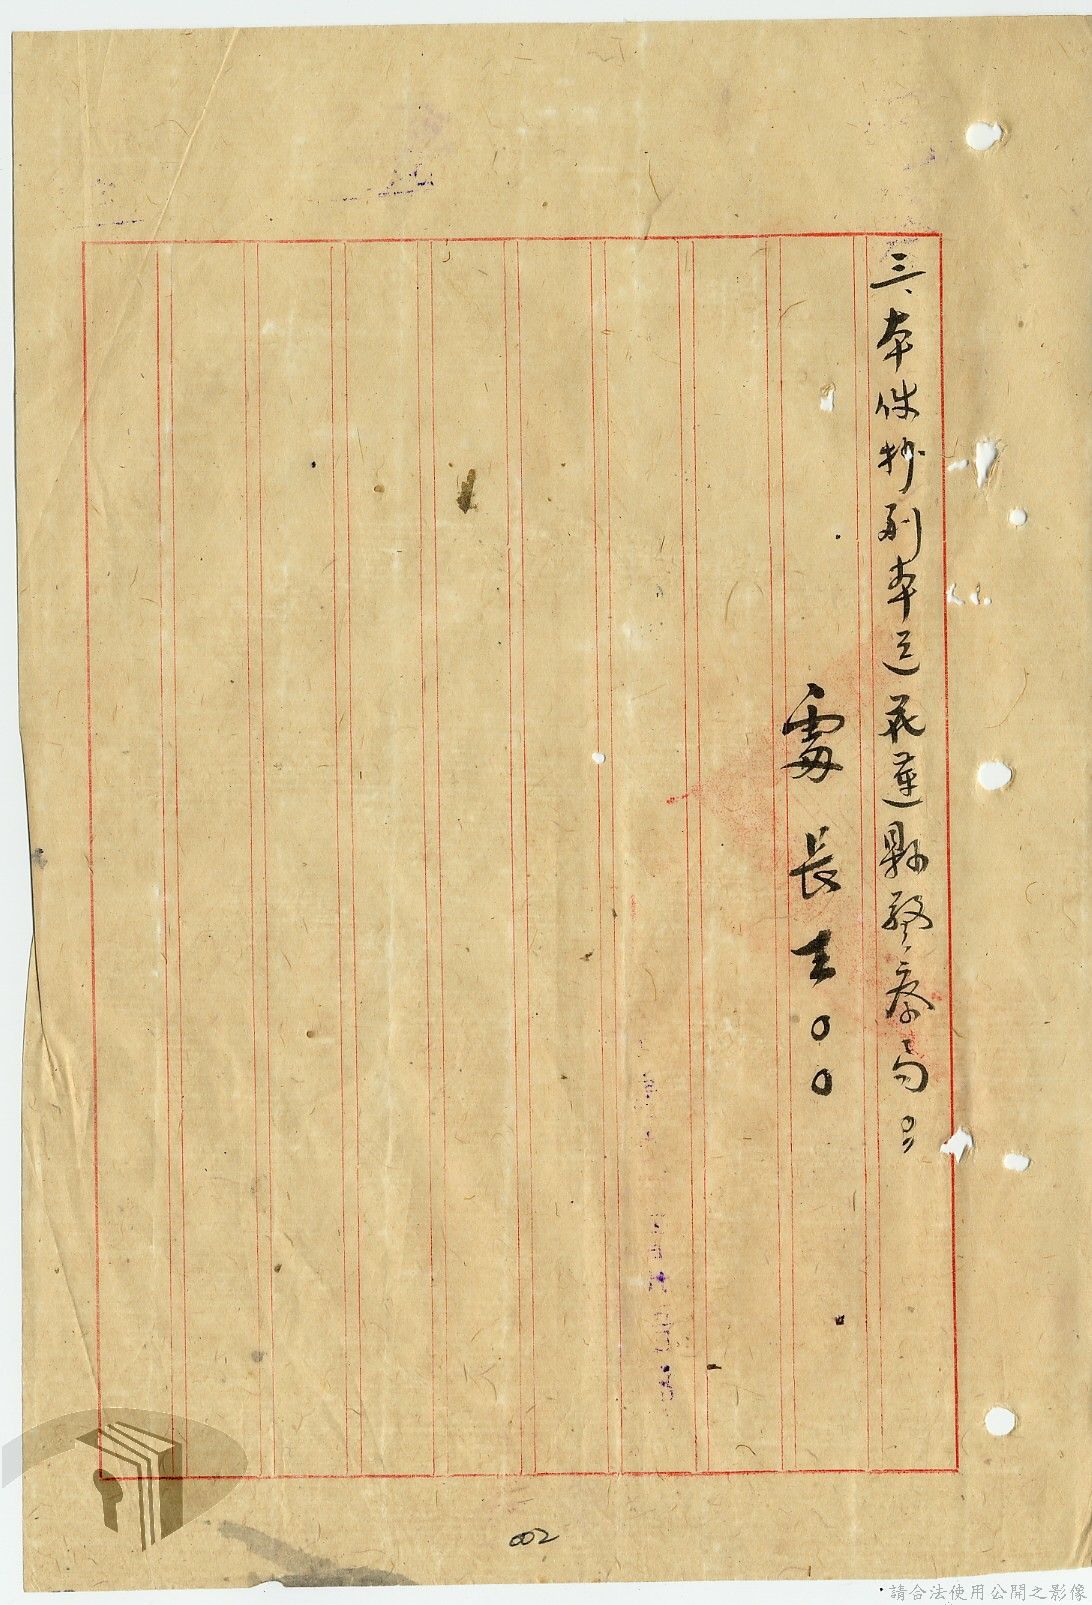 三、本件抄副本送花蓮縣警察局。
處長王〇〇
002
請合法使用公開之影像